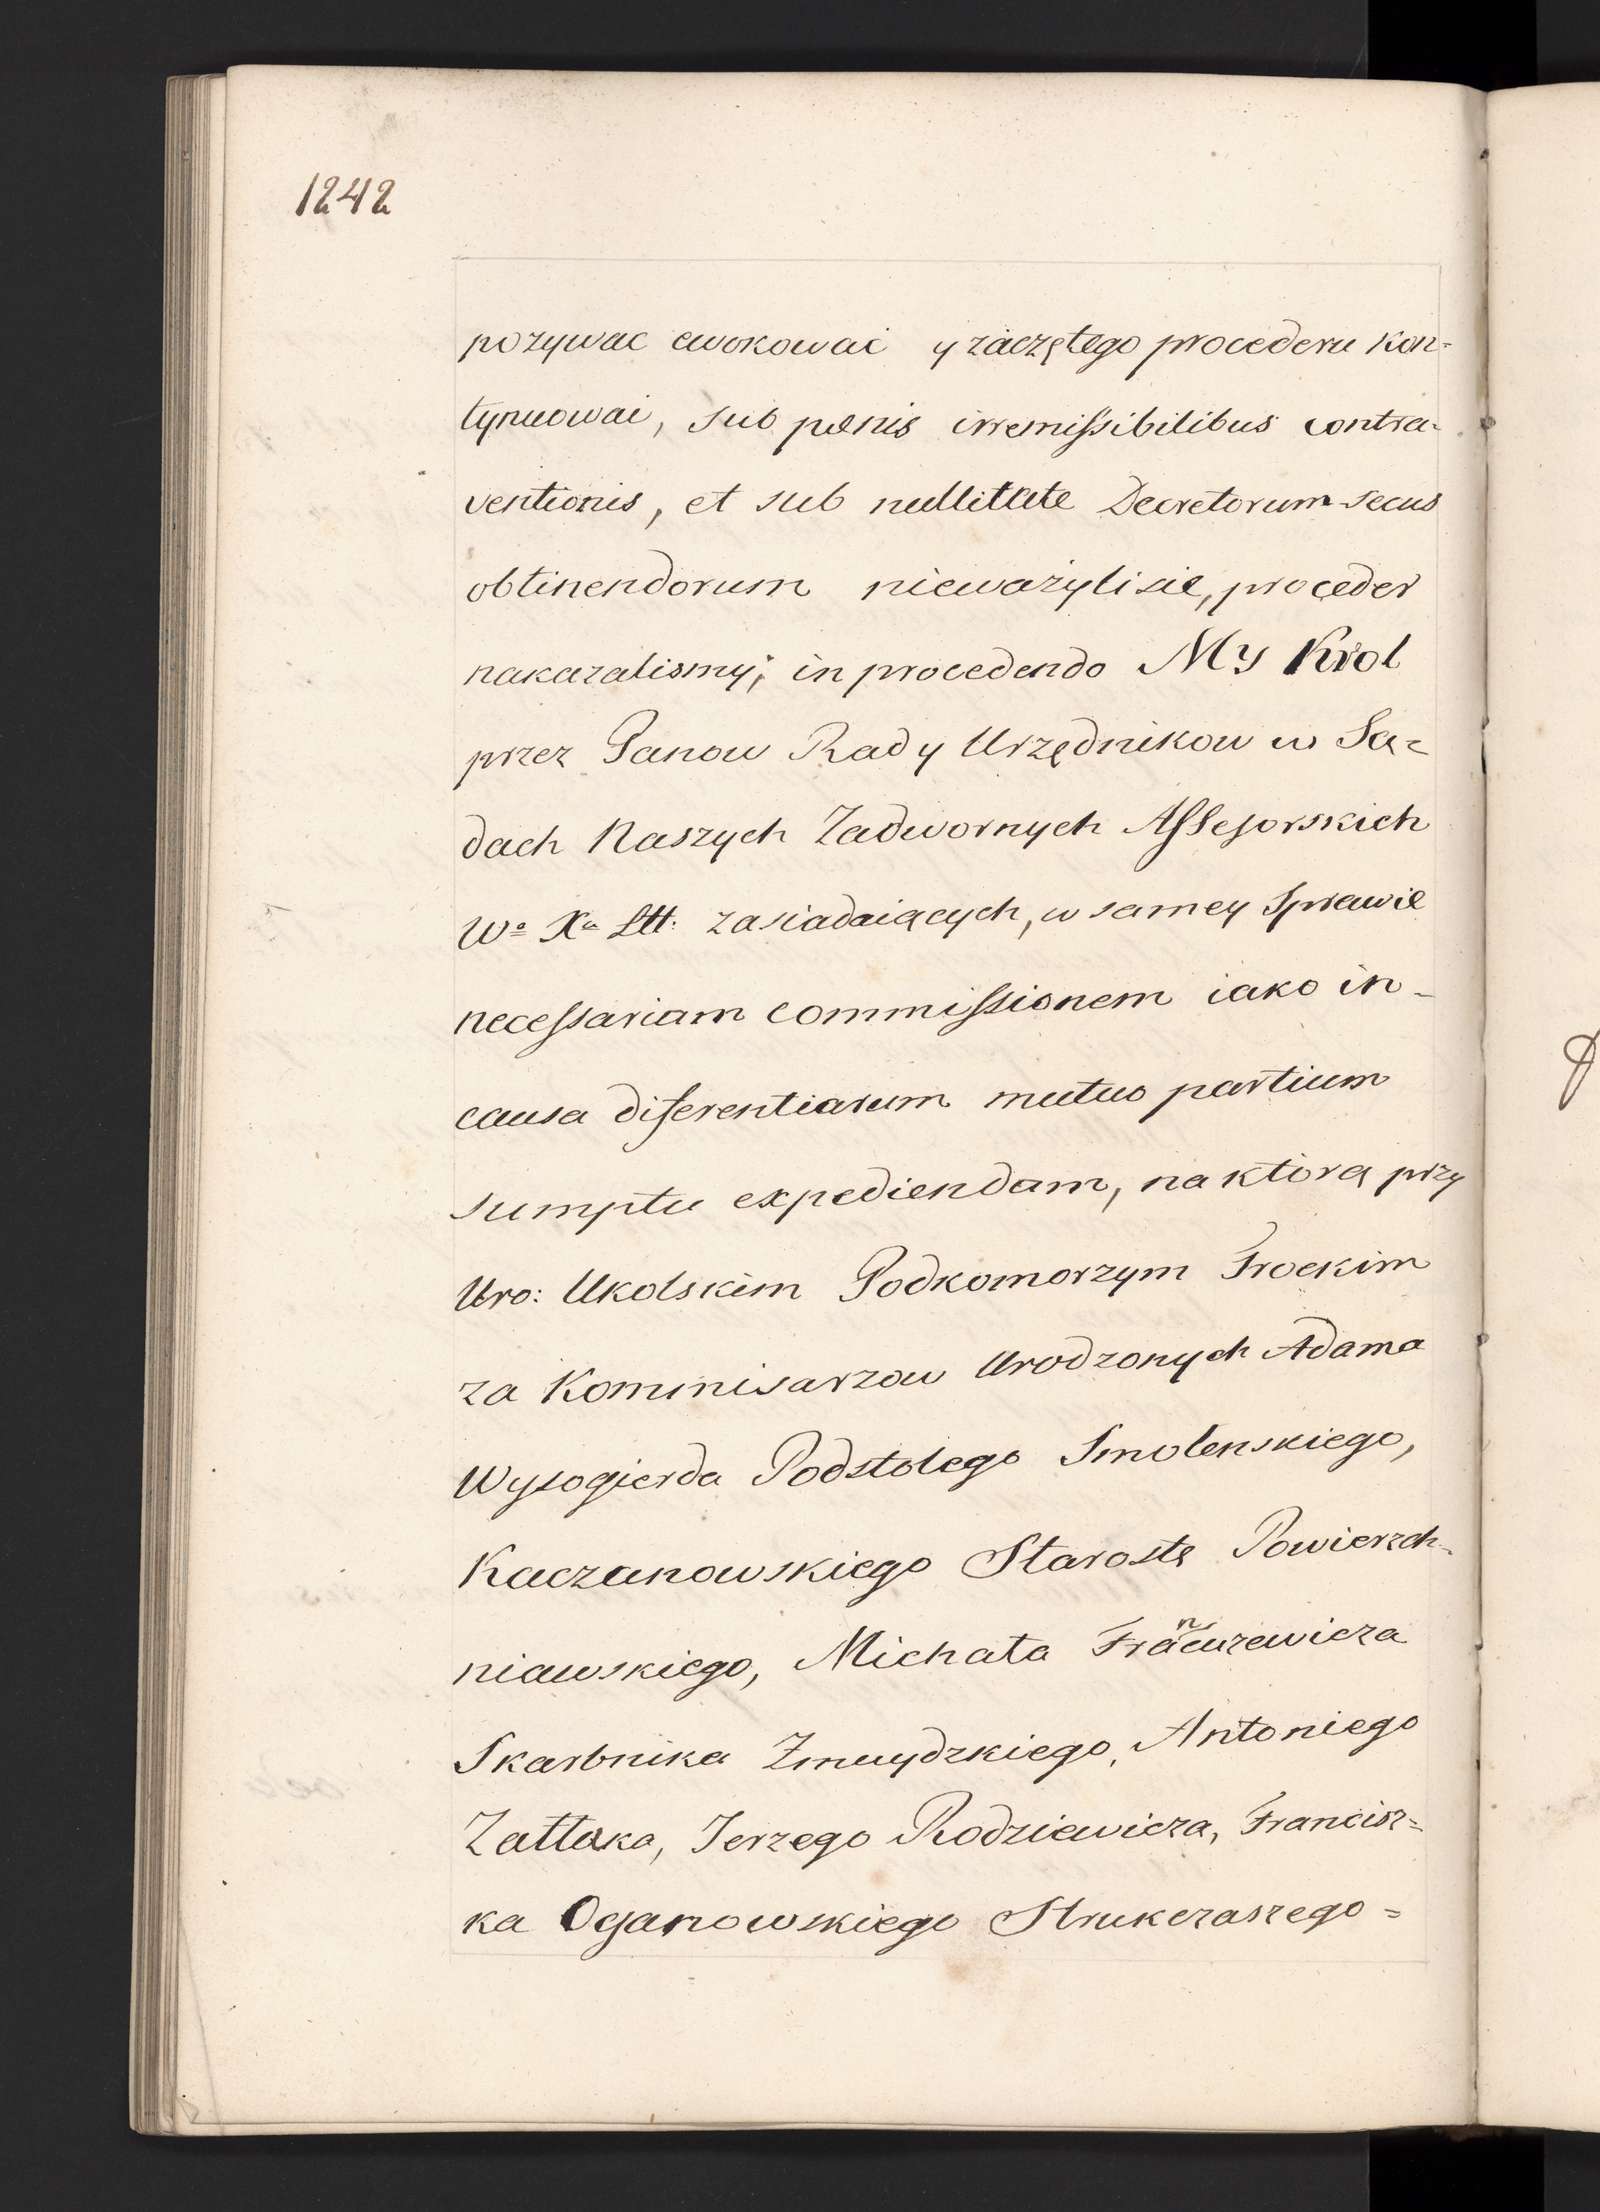 1242
pozywac ewokowac y zaczętego procederu kon=
tynuowac, sub pœnis irremissibilibus contra-
ventionis, et sub nullitate Decretorum secus
obtinendorum nieważyli sie, proceder
nakazalismy; in procedendo My Krol
przez Panow Rad y Urzędnikow w Są=
dach Naszych Zadwornych Assessorskich
Wo Xa Litt: zasiadaiących, w samey Sprawie
necessariam commissionem iako in-
causa diferentiarum mutuo partium
sumptu expediendam, na ktorą przy
Uro: Ukolskim Podkomorzym Trockim
za Kommisarzow Urodzonych Adama
Wysogierda Podstolego Smolenskiego,
Kaczanowskiego Starostę Powierzch-
niawskiego, Michała Francuzewicza
Skarbnika Zmuydzkiego, Antoniego
Zattoka, Jerzego Rodziewicza, Francisz=
ka Oganowskiego Strukczaszego=